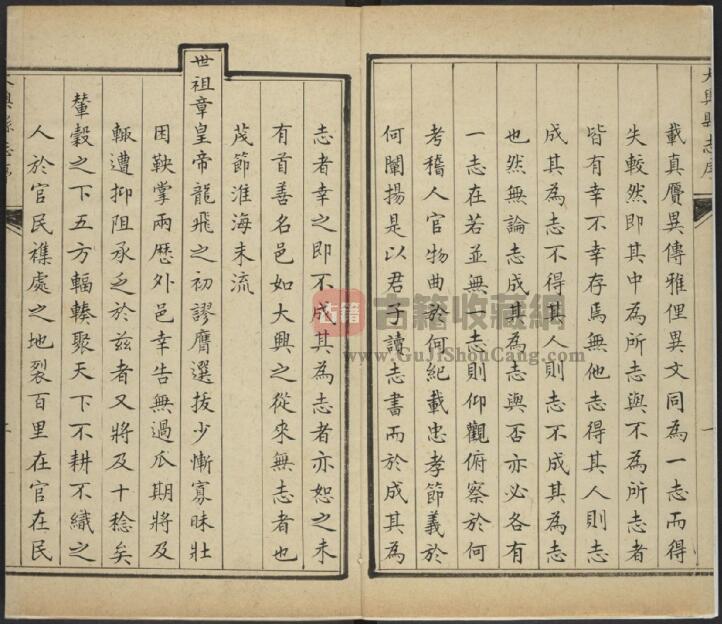 大興縣志序
載真贗異傳雅俚異文同為一志而得
失較然即其中為所志與不為所志者
皆有幸不幸存焉無他志得其人則志
成其為志不得其人則志不成其為志
也然無論志成其為志與否亦必各有
一志在若並無一志則仰觀俯察於何
考稽人官物曲於何紀載忠孝節義於
何闡揚是以君子讀志書而於成其為
志者幸之即不成其為志者亦恕之未
有首善名邑如大興之從來無志者也
茂節淮海末流
世祖章皇帝龍飛之初謬膺選拔少慚寡昧壯
因鞅掌兩歷外邑幸告無過瓜期將及
輒遭抑阻承乏於兹者又將及十稔矣
輦轂之下五方輻輳聚天下不耕不織之
人於官民襍處之地裂百里在官在民
古籍 古籍收藏網
www.GuJiShouCang.com